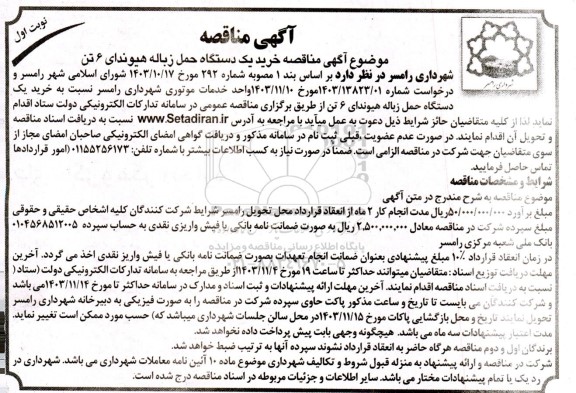 نوبت اول
آگهی مناقصه
شهرداری رامسر
موضوع آگهی مناقصه خرید یک دستگاه حمل زباله هیوندای ۶ تن
شهرداری رامسر در نظر دارد بر اساس بند ۱ مصوبه شماره ۲۹۲ مورخ ۱۴۰۳/۱۰/۱۷ شورای اسلامی شهر رامسر و
درخواست شماره ۱۴۰۳/۱۳۸۲۳/۰۱مورخ ۱۴۰۳/۱۱/۱۰واحد خدمات موتوری شهرداری رامسر نسبت به خرید یک
دستگاه حمل زباله هیوندای ۶ تن از طریق برگزاری مناقصه عمومی در سامانه تدارکات الکترونیکی دولت ستاد اقدام
نماید لذا از کلیه متقاضیان حائز شرایط ذیل دعوت به عمل میآید با مراجعه به آدرس www.Setadiran.ir نسبت به دریافت اسناد مناقصه
و تحویل آن اقدام نمایند. در صورت عدم عضویت ،قبلی ثبت نام در سامانه مذکور و دریافت گواهی امضای الکترونیکی صاحبان امضای مجاز از
سوی متقاضیان جهت شرکت در مناقصه الزامی است. ضمناً در صورت نیاز به کسب اطلاعات بیشتر با شماره تلفن: ۰۱۱۵۵۲۵۶۱۷۳ (امور قراردادها
تماس حاصل فرمایید.
شرایط و مشخصات مناقصه
موضوع مناقصه به شرح مندرج در متن آگهی
مبلغ برآورد ۵۰/۰۰۰/۰۰۰/۰۰۰ریال مدت انجام کار ۲ ماه از انعقاد قرارداد محل تحویل رامسر شرایط شرکت کنندگان کلیه اشخاص حقیقی و حقوقی
مبلغ سپرده شرکت در مناقصه معادل ۲.۵۰۰.۰۰۰.۰۰۰ ریال به صورت ضمانت نامه بانکی یا فیش واریزی نقدی به حساب سپرده ۰۱۰۴۵۶۸۵۱۲۰۰۵
بانک ملی شعبه مرکزی رامسر
در زمان انعقاد قرارداد ۱۰٪ مبلغ پیشنهادی بعنوان ضمانت انجام تعهدات بصورت ضمانت نامه بانکی یا فیش واریز نقدی اخذ می گردد. آخرین
مهلت دریافت توزیع اسناد: متقاضیان میتوانند حداکثر تا ساعت ۱۹ مورخ ۱۴۰۳/۱۱/۴از طریق مراجعه به سامانه تدارکات الکترونیکی دولت (ستاد)
نسبت به دریافت اسناد مناقصه اقدام نمایند. آخرین مهلت ارائه پیشنهادات و ثبت اسناد و مدارک در سامانه حداکثر تا مورخ ۱۴۰۳/۱۱/۱۴می باشد
و شرکت کنندگان می بایست تا تاریخ و ساعت مذکور پاکت حاوی سپرده شرکت در مناقصه را به صورت فیزیکی به دبیرخانه شهرداری رامسر
تحویل نمایند تاریخ و محل بازگشایی پاکات مورخ ۱۴۰۳/۱۱/۱۵در محل سالن جلسات شهرداری میباشد که) حسب مورد ممکن است تغییر نماید.
مدت اعتبار پیشنهادات سه ماه می باشد. هیچگونه وجهی بابت پیش پرداخت داده نخواهد شد.
برندگان اول و دوم مناقصه هرگاه حاضر به انعقاد قرارداد نشوند سپرده آنها به ترتیب ضبط خواهد شد.
شرکت در مناقصه و ارائه پیشنهاد به منزله قبول شروط و تکالیف شهرداری موضوع ماده ۱۰ آئین نامه معاملات شهرداری می باشد. شهرداری در
رد یک یا تمام پیشنهادات مختار می باشد. سایر اطلاعات و جزئیات مربوطه در اسناد مناقصه درج شده است.